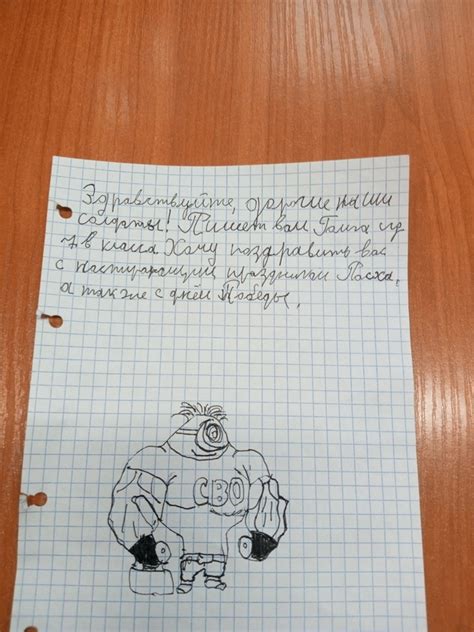 Здравствуйте, дорогие наши
солдаты! Пишет вам Гаша из
7в класса Хочу поздравить вас
с наступающим праздником Пасха,
а также с днём Победы.
СВО